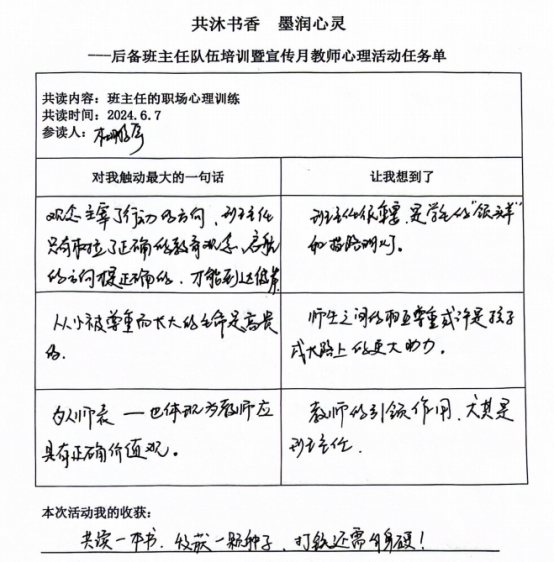 共沐书香 墨润心灵
---后备班主任队伍培训暨宣传月教师心理活动任务单
共读内容：班主任的职场心理训练
共读时间：2024.6.7
参读人：
对我触动最大的一句话
让我想到了
观念主宰了行动的方向，班主任
只有树立了正确的教育观念，启航
的方向才是正确的，才能到达彼岸
班主任很重要，是学生的“领头羊”
和指路明灯。
从小被尊重而长大的生命是高贵
的.
师生之间的相互尊重或许是孩子
成长路上的更大助力.
为人师表 — 也体现为教师应
具有正确价值观。
教师的引领作用，尤其是
班主任.
本次活动我的收获：
共读一本书，收获一颗种子，打铁还需自身硬！